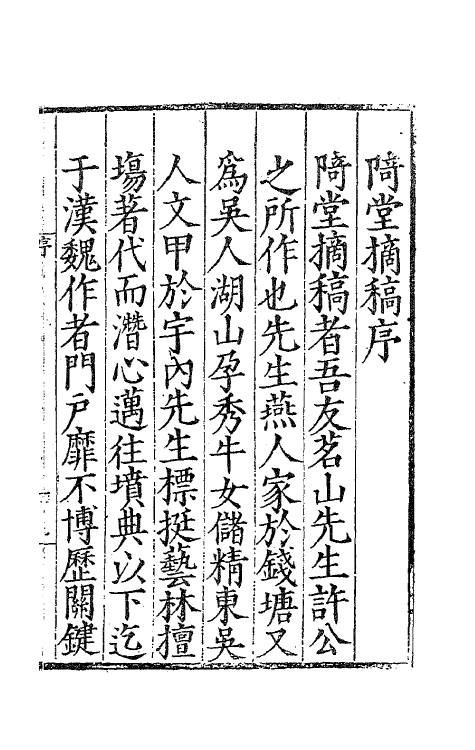 陭堂摘稿序
陭堂摘稿者吾友茗山先生許公
之所作也先生燕人家於錢塘又
為吳人湖山孕秀牛女儲精東吳
人文甲於宇內先生標挺藝林擅
塲著代而潛心邁往墳典以下迄
于漢魏作者門戶靡不博歷關鍵
序